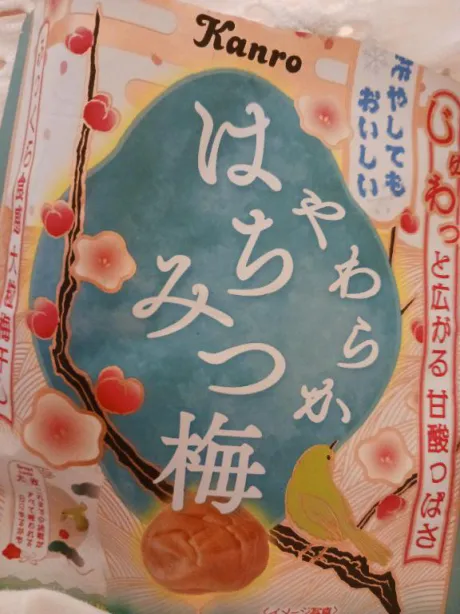 Kanro
冷やしても
おいしい
じゅわっと広がる甘酸っぱさ
やわらか
はちみつ梅
(イメージ写真)